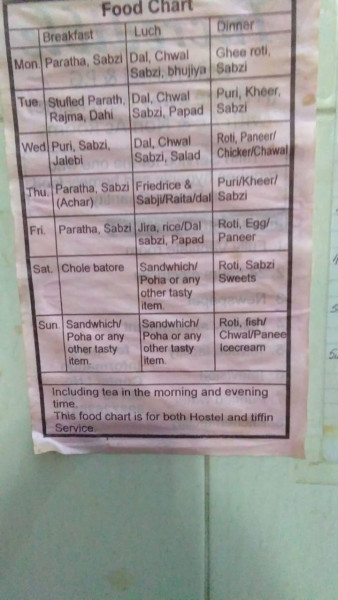 Food Chart
Breakfast Luch Dinner
Mon. Paratha, Sabzi Dal, Chwal Ghee roti,
Sabzi, bhujiya Sabzi
Tue. Stufled Parath, Dal, Chwal Puri, Kheer,
Rajma, Dahi Sabzi, Papad Sabzi
Wed. Puri, Sabzi, Dal, Chwal Roti, Paneer/
Jalebi Sabzi, Salad Chicker/Chawal
Thu. Paratha, Sabzi Friedrice & Puri/Kheer/
(Achar) Sabji/Raita/dal Sabzi
Fri. Paratha, Sabzi Jira, rice/Dal Roti, Egg/
sabzi, Papad Paneer
Sat. Chole batore Sandwhich/ Roti, Sabzi
Poha or any Sweets
other tasty
item.
Sun. Sandwhich/ Sandwhich/ Roti, fish/
Poha or any Poha or any Chwal/Panee
other tasty other tasty Icecream
item. item.
Including tea in the morning and evening
time.
This food chart is for both Hostel and tiffin
Service.